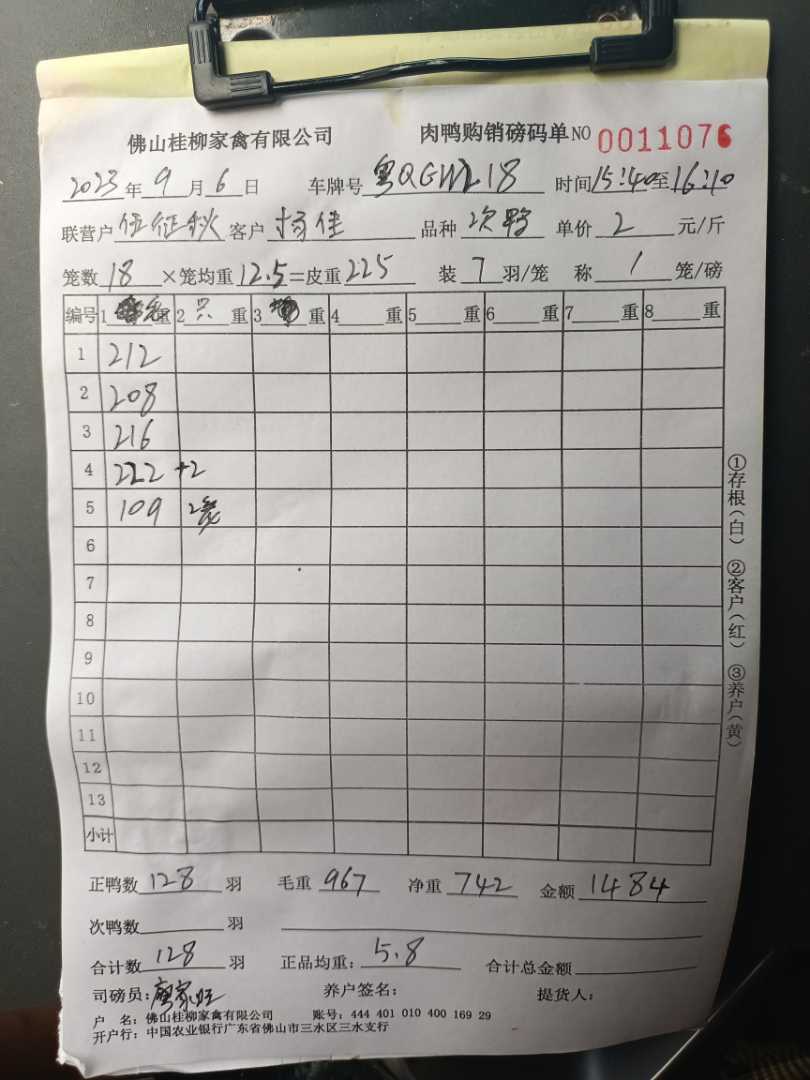 佛山桂柳家禽有限公司 肉鸭购销磅码单 NO 0011076
2023年9月6日 车牌号 粤QGW218 时间15:40至16:10
联营户 伍征秋 客户 杨佳 品种 次鸭 单价 2 元/斤
笼数 18 ×笼均重 12.5=皮重 225 装 7 羽/笼 称 1 笼/磅
编号 1 重 2 只 重 3 重 4 重 5 重 6 重 7 重 8 重
1 212
2 208
3 216
4 222 +2
5 109 2笼
6
7
8
9
10
11
12
13
小计
正鸭数 128 羽 毛重 967 净重 742 金额 1484
次鸭数 羽
合计数 128 羽 正品均重: 5.8 合计总金额
司磅员: 廖家旺 养户签名: 提货人:
户 名: 佛山桂柳家禽有限公司 账号: 444 401 010 400 169 29
开户行: 中国农业银行广东省佛山市三水区三水支行
①存根(白) ②客户(红) ③养户(黄)